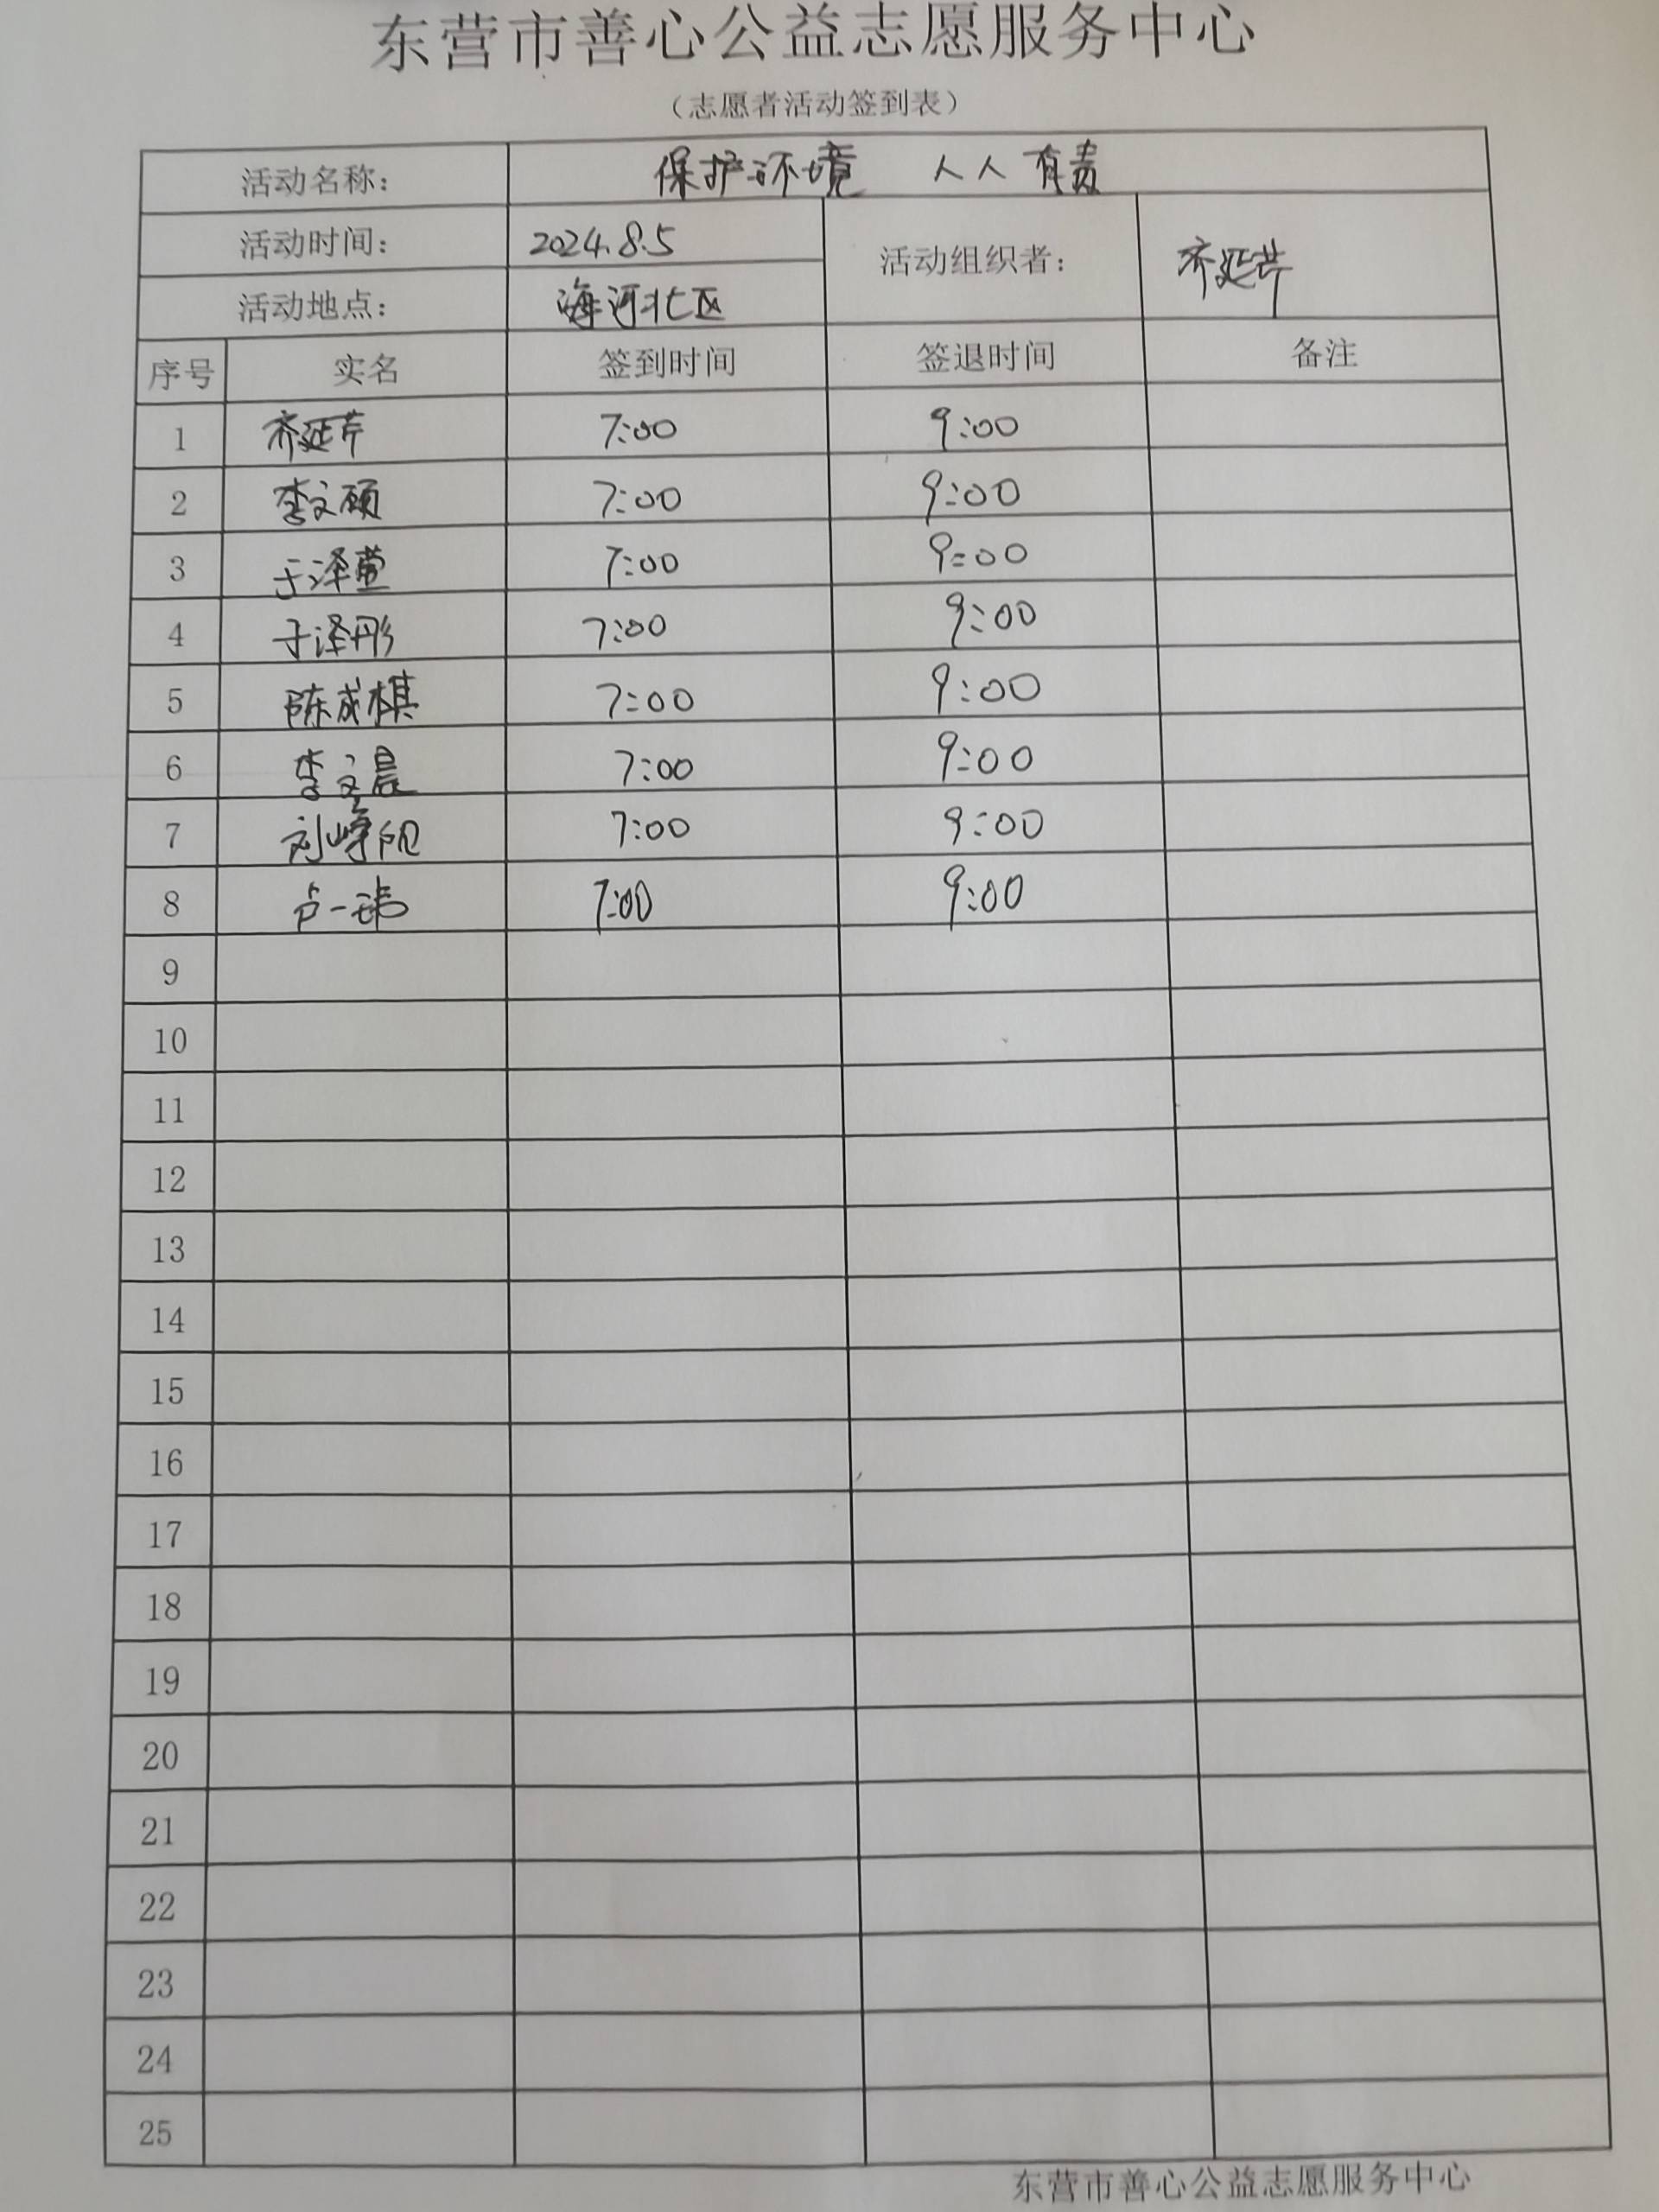 东营市善心公益志愿服务中心
（志愿者活动签到表）
活动名称： 保护环境 人人有责
活动时间： 2024.8.5 活动组织者： 齐延芹
活动地点： 海河北区
序号 实名 签到时间 签退时间 备注
1 齐延芹 7:00 9:00
2 李文硕 7:00 9:00
3 于泽萱 7:00 9:00
4 于泽彤 7:00 9:00
5 陈成棋 7:00 9:00
6 李文晨 7:00 9:00
7 刘峥 7:00 9:00
8 卢一玮 7:00 9:00
9
10
11
12
13
14
15
16
17
18
19
20
21
22
23
24
25
东营市善心公益志愿服务中心